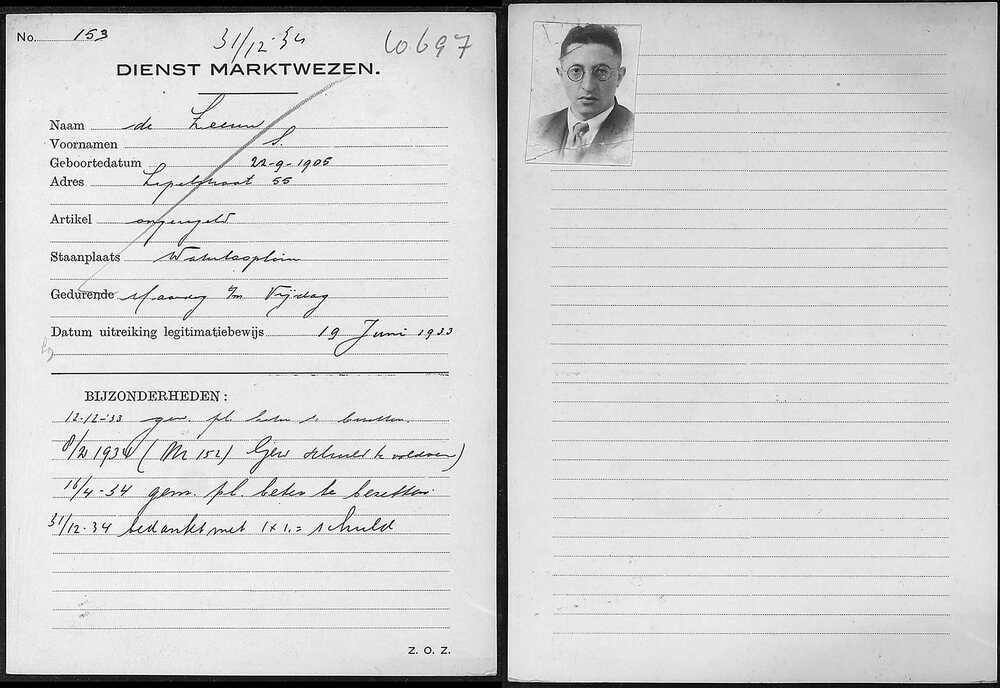 No. 153
31/12-34
60697
DIENST MARKTWEZEN.
Naam de Zeeuw
Voornamen S.
Geboortedatum 22-9-1905
Adres Lepelstraat 55
Artikel ongeregeld
Staanplaats Waterlooplein
Gedurende Maandag t/m Vrijdag
Datum uitreiking legitimatiebewijs 19 Juni 1933
BIJZONDERHEDEN:
12-12-'33 gew. pl. beter te bezetten.
8/2 1934 (M 152) Gew schuld te voldoen)
16/4-34 gew. pl. beter te bezetten.
31/12-34 bedankt met 1 x 1.= schuld
Z. O. Z.